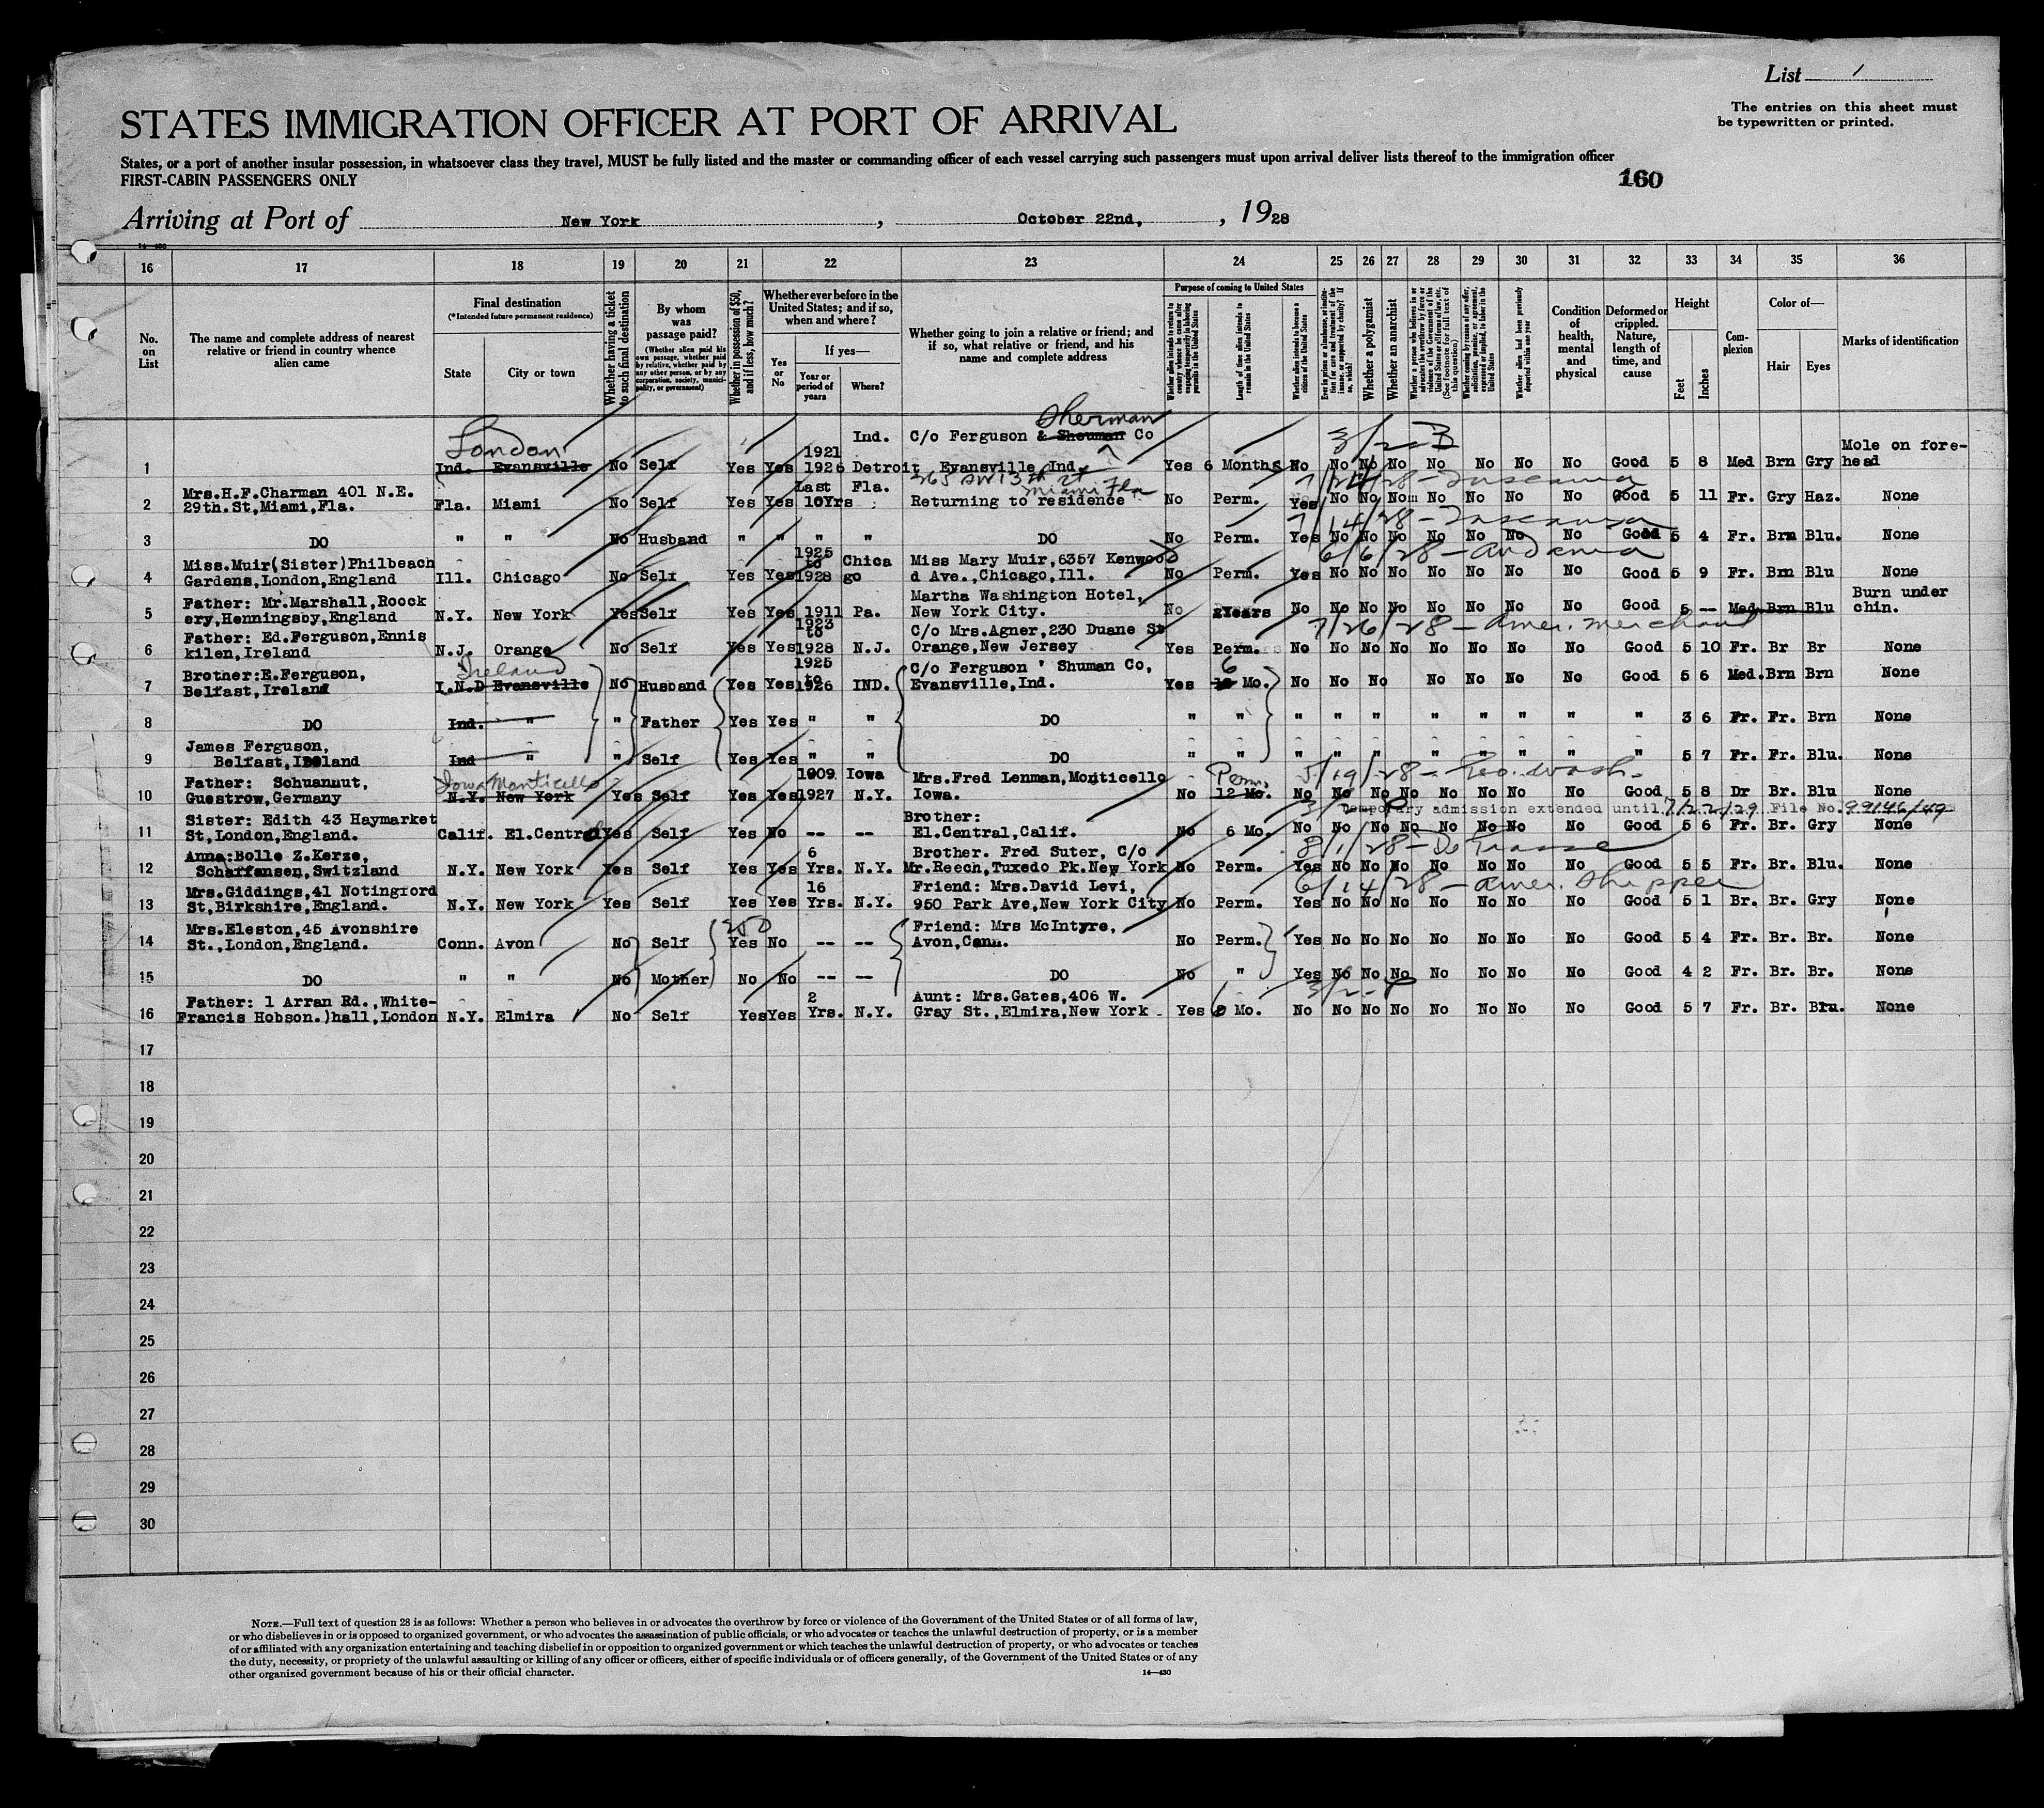 List 1
The entries on this sheet must
be typewritten or printed.
STATES IMMIGRATION OFFICER AT PORT OF ARRIVAL
States, or a port of another insular possession, in whatsoever class they travel, MUST be fully listed and the master or commanding officer of each vessel carrying such passengers must upon arrival deliver lists thereof to the immigration officer
FIRST-CABIN PASSENGERS ONLY
160
Arriving at Port of New York, October 22nd, 1928
14—430
16 17 18 19 20 21 22 23 24 25 26 27 28 29 30 31 32 33 34 35 36
No. on List
The name and complete address of nearest relative or friend in country whence alien came
Final destination
(*Intended future permanent residence)
State
City or town
Whether having a ticket to such final destination
By whom was passage paid?
(Whether alien paid his own passage, whether paid by relative, whether paid by any other person, or by any corporation, society, municipality, or government)
Whether in possession of $50, and if less, how much?
Whether ever before in the United States; and if so, when and where?
Yes or No
If yes—
Year or period of years
Where?
Whether going to join a relative or friend; and if so, what relative or friend, and his name and complete address
Purpose of coming to United States
Length of time alien intends to remain in the United States
Whether alien intends to become a citizen of the United States
Whether a polygamist
Whether an anarchist
Condition of health, mental and physical
Deformed or crippled. Nature, length of time, and cause
Height
Feet
Inches
Complexion
Color of—
Hair
Eyes
Marks of identification
London Sherman
Ind. C/o Ferguson & Shouman Co 3/2-B
1921 Mole on fore-
1 Ind. Evansville No Self Yes Yes 1926 Detroit Evansville Ind. Yes 6 Months No No No No No No No No Good 5 8 Med Brn Gry head
265 SW 13th St Miami Fla
7/24/28 - Tuscania
Mrs.H.F.Charman 401 N.E. Last Fla.
2 29th.St,Miami,Fla. Fla. Miami No Self Yes Yes 10Yrs Returning to residence No Perm. Yes No No No No No No No Good 5 11 Fr. Gry Haz. None
7/14/28 - Tuscania
3 DO " " No Husband " " " " DO No Perm. Yes No No No No No No No Good 5 4 Fr. Brn Blu. None
6/6/28 - Andania
Miss.Muir(Sister)Philbeach 1925 to Chica Miss Mary Muir,6357 Kenwood
4 Gardens,London,England Ill. Chicago No Self Yes Yes 1928 go d Ave.,Chicago,Ill. No Perm. Yes No No No No No No No Good 5 9 Fr. Brn Blu None
Father: Mr.Marshall,Roock Martha Washington Hotel, Burn under
5 ery,Henningsby,England N.Y. New York Yes Self Yes Yes 1911 Pa. New York City. No 2Years No No No No No No No No Good 5 -- Med Brn Blu chin.
7/26/28 - Amer. Merchant
Father: Ed.Ferguson,Ennis 1923 to C/o Mrs.Agner,230 Duane St
6 kilen,Ireland N.J. Orange No Self Yes Yes 1928 N.J. Orange,New Jersey Yes Perm. No No No No No No No No Good 5 10 Fr. Br Br None
Ireland
Brother:E.Ferguson, 1925 to C/o Ferguson ' Shuman Co, 6
7 Belfast,Ireland I.N.D Evansville No Husband Yes Yes 1926 IND. Evansville,Ind. Yes Mo. No No No No No No No No Good 5 6 Med. Brn Brn None
8 DO Ind. " " Father Yes Yes " " DO " " " " " " " " " " " 3 6 Fr. Fr. Brn None
James Ferguson,
9 Belfast,Ireland Ind " " Self Yes Yes " " DO " " " " " " " " " " " 5 7 Fr. Fr. Blu. None
Iowa Monticello Perm. 5/19/28 - Geo. Wash.
Father: Schuannut, 1909 Iowa Mrs.Fred Lenman,Monticello
10 Guestrow,Germany N.Y. New York Yes Self Yes Yes 1927 N.Y. Iowa. No 12 Mo. No No No No No No No No Good 5 8 Dr Br. Blu None
3/2-P Temporary admission extended until 7/22/29 File No. 99146/149
Sister: Edith 43 Haymarket Brother:
11 St,London,England. Calif. El.Central Yes Self Yes No -- -- El.Central,Calif. No 6 Mo. No No No No No No No No Good 5 6 Fr. Br. Gry None
8/1/28 - De Grasse
Anna:Bolle Z.Kerze, 6 Brother. Fred Suter, C/o
12 Schaffansen,Switzland N.Y. New York Yes Self Yes Yes Yrs. N.Y. Mr.Reech,Tuxedo Pk.New York No Perm. Yes No No No No No No No Good 5 5 Fr. Br. Blu. None
6/14/28 - Amer. Shipper
Mrs.Giddings,41 Notingford 16 Friend: Mrs.David Levi,
13 St,Birkshire,England. N.Y. New York Yes Self Yes Yes Yrs. N.Y. 950 Park Ave,New York City No Perm. Yes No No No No No No No Good 5 1 Br. Br. Gry None
Mrs.Eleston,45 Avonshire 250 Friend: Mrs McIntyre,
14 St.,London,England. Conn. Avon No Self Yes No -- -- Avon,Conn. No Perm. Yes No No No No No No No Good 5 4 Fr. Br. Br. None
15 DO " " No Mother No No -- -- DO No " Yes No No No No No No No Good 4 2 Fr. Br. Br. None
3/2-P
Father: 1 Arran Rd.,White- 2 Aunt: Mrs.Gates,406 W.
16 Francis Hobson.)hall,London N.Y. Elmira No Self Yes Yes Yrs. N.Y. Gray St.,Elmira,New York Yes 6 Mo. No No No No No No No No Good 5 7 Fr. Br. Blu. None
17
18
19
20
21
22
23
24
25
26
27
28
29
30
NOTE.—Full text of question 28 is as follows: Whether a person who believes in or advocates the overthrow by force or violence of the Government of the United States or of all forms of law,
or who disbelieves in or is opposed to organized government, or who advocates the assassination of public officials, or who advocates or teaches the unlawful destruction of property, or is a member
of or affiliated with any organization entertaining and teaching disbelief in or opposition to organized government or which teaches the unlawful destruction of property, or who advocates or teaches
the duty, necessity, or propriety of the unlawful assaulting or killing of any officer or officers, either of specific individuals or of officers generally, of the Government of the United States or of any
other organized government because of his or their official character.
14—430